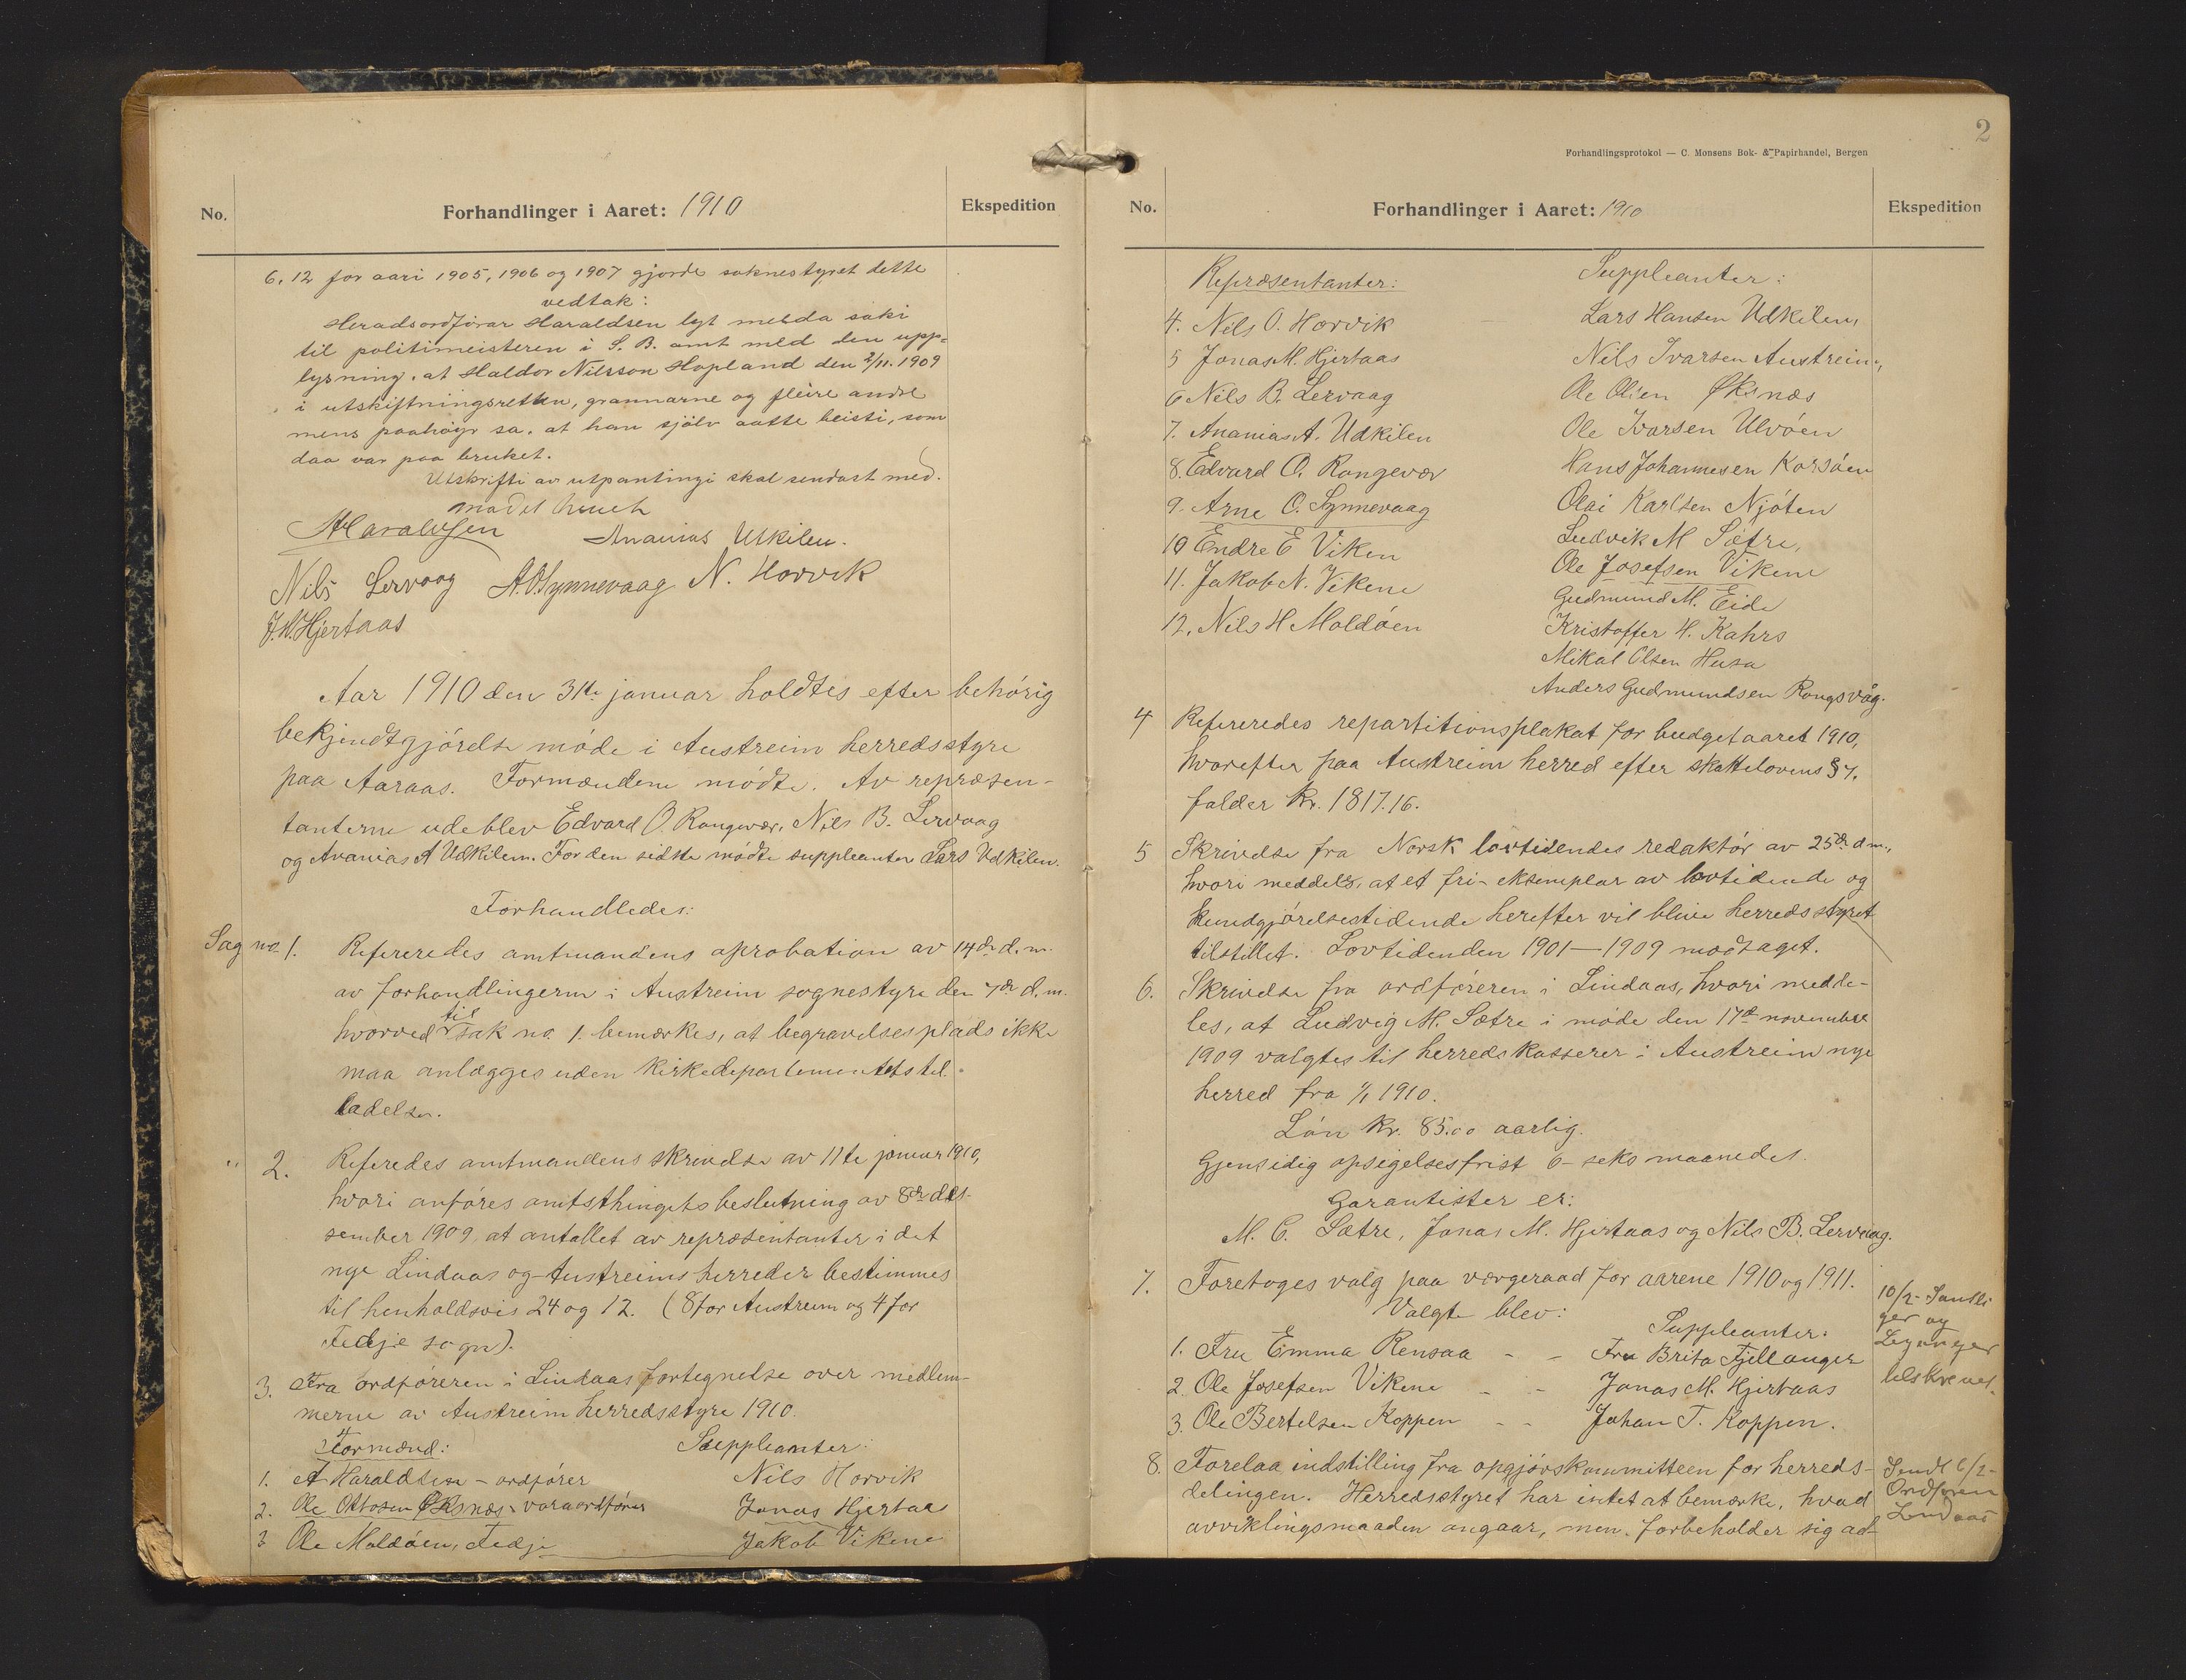 No.
Forhandlinger i Aaret: 1910
Ekspedition
6. 12 for aari 1905, 1906 og 1907 gjorde soknestyret dette
vedtak:
Heradsordførar Haraldsen lyt melda saki
til politimeisteren i S. B. amt med den upp-
lysning, at Haldor Nilsson Hopland den 2/11. 1909
i utskiftningsretten, grannarne og fleire andre
mens paahøyr sa, at han sjölv aatte beisti, som
daa var paa bruket.
Utskrifti av utpantingi skal sendast med.
Mødet hævet
AHaraldsen Ananias Utkilen.
Nils Lervaag A.O.Synnevaag N. Horvik
J.M.Hjertaas
Aar 1910 den 31te januar holdtes efter behørig
bekjendtgjörelse möde i Austreim herredsstyre
paa Aaraas. Formændene mödte. Av repræsen-
tanterne udeblev Edvard O. Rongevær, Nils B. Lervaag
og Ananias A Udkilen. For den sidste mödte suppleanten Lars Udkilen.
Forhandledes:
Sag no. 1. Refereredes amtmandens aprobation av 14de d. m.
av forhandlingerne i Austreim sognestyre den 7de d. m.
hvorved til sak no. 1. bemærkes, at begravelsesplads ikke
maa anlægges uden Kirkedepartementets til-
ladelse.
" 2. Referedes amtmandens skrivelse av 11te januar 1910,
hvori anföres amtsthingets beslutning av 8de des-
sember 1909, at antallet av repræsentanter i det
nye Lindaas og Austreims herreder bestemmes
til henholdsvis 24 og 12. (8 for Austreim og 4 for
Fedje sogn).
3. Fra ordföreren i Lindaas fortegnelse over medlem-
merne av Austreim herredsstyre 1910.
Formænd: Suppleanter:
1. A Haraldsen - ordförer Nils Horvik
2. Ole Ottosen Øksnæs - varaordförer Jonas Hjertaa
3 Ole Moldöen, Fedje Jakob Vikene
2
Forhandlingsprotokol — C. Monsens Bok- & Papirhandel, Bergen
No.
Forhandlinger i Aaret: 1910
Ekspedition
Repræsentanter: Suppleanter:
4. Nils O. Horvik Lars Hansen Udkilen,
5 Jonas M. Hjertaas Nils Ivarsen Austreim,
6 Nils B. Lervaag Ole Olsen Øksnæs
7. Ananias A. Udkilen Ole Ivarsen Ulvöen
8. Edvard O. Rongevær Hans Johannesen Korsöen
9. Arne O. Synnevaag Olai Karlsen Njöten
10 Endre E Viken Ludvik M Sætre,
11. Jakob N. Vikene Ole Josefsen Vikene
12. Nils H Moldöen Gudmund M. Eide
Kristoffer H. Kahrs
Mikal Olsen Husa
Anders Gudmundsen Rongsvåg.
4 Refereredes repartitionsplakat for budgetaaret 1910,
hvorefter paa Austreim herred efter skattelovens § 7.
falder kr. 1817.16.
5 Skrivelse fra Norsk lovtidendes redaktör av 25de dm.,
hvori meddeles, at et fri-eksemplar av lovtidende og
kundgjörelsestidende herefter vil blive herredsstyret
tilstillet. Lovtidenden 1901—1909 modtaget.
6. Skrivelse fra ordföreren i Lindaas, hvori medde-
les, at Ludvig M. Sætre i möde den 17de november
1909 valgtes til herredskasserer i Austreim nye
herred fra 1/1 1910.
Lön kr. 85.00 aarlig.
Gjensidig opsigelsesfrist 6- seks maaneder.
Garantister er:
M. C. Sætre, Jonas M. Hjertaas og Nils B. Lervaag.
7. Foretoges valg paa værgeraad for aarene 1910 og 1911.
Valgte blev: Suppleanter:
1. Fru Emma Rensaa - - Fru Brita Fjellanger
2. Ole Josefsen Vikene - - Jonas M. Hjertaas
3. Ole Bertelsen Koppen - - Johan T. Koppen.
10/2-
ger og
tilskrevet.
8. Forelaa indstilling fra opgjörskommitteen for herreds-
delingen. Herredsstyret har intet at bemærke, hvad
avviklingsmaaden angaar, men forbeholder sig ad-
Sendt 6/2-
Ordføren
Lindaas